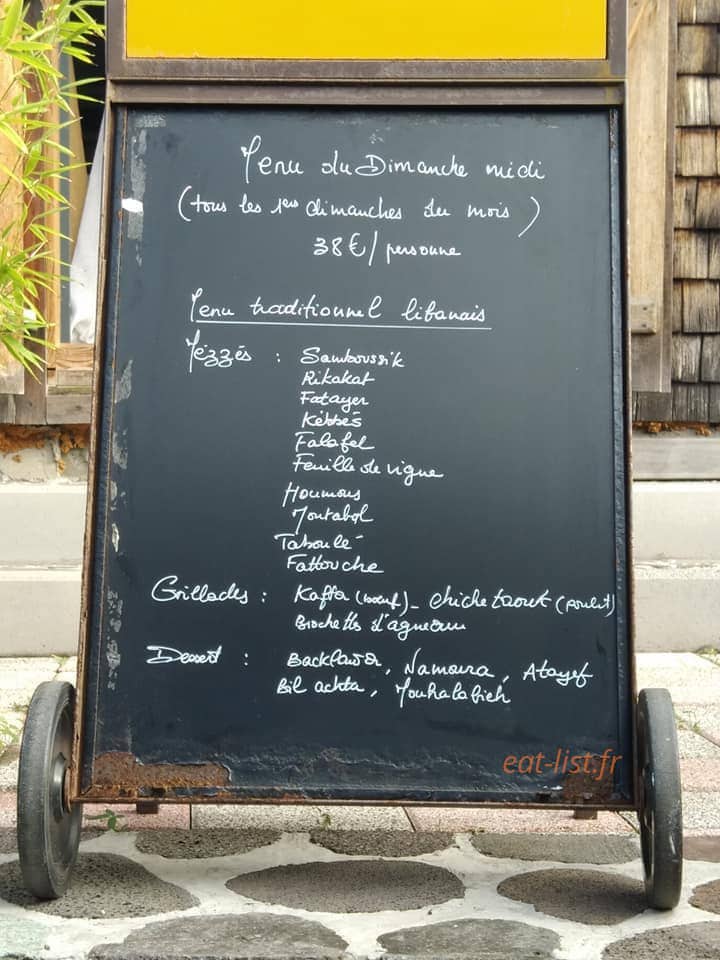 Menu du Dimanche midi
(tous les 1ers dimanches du mois)
38€/personne
Menu traditionnel libanais
Mézzés : Samboussik
Rikakat
Fatayer
Kébbés
Falafel
Feuille de vigne
Houmous
Moutabal
Taboulé
Fattouche
Grillades : Kafta (bœuf) - chiche taouk (poulet)
Brochettes d'agneau
Dessert : Backlawa, Namoura, Atayef
Bil achta, Mouhalabieh
eat-list.fr